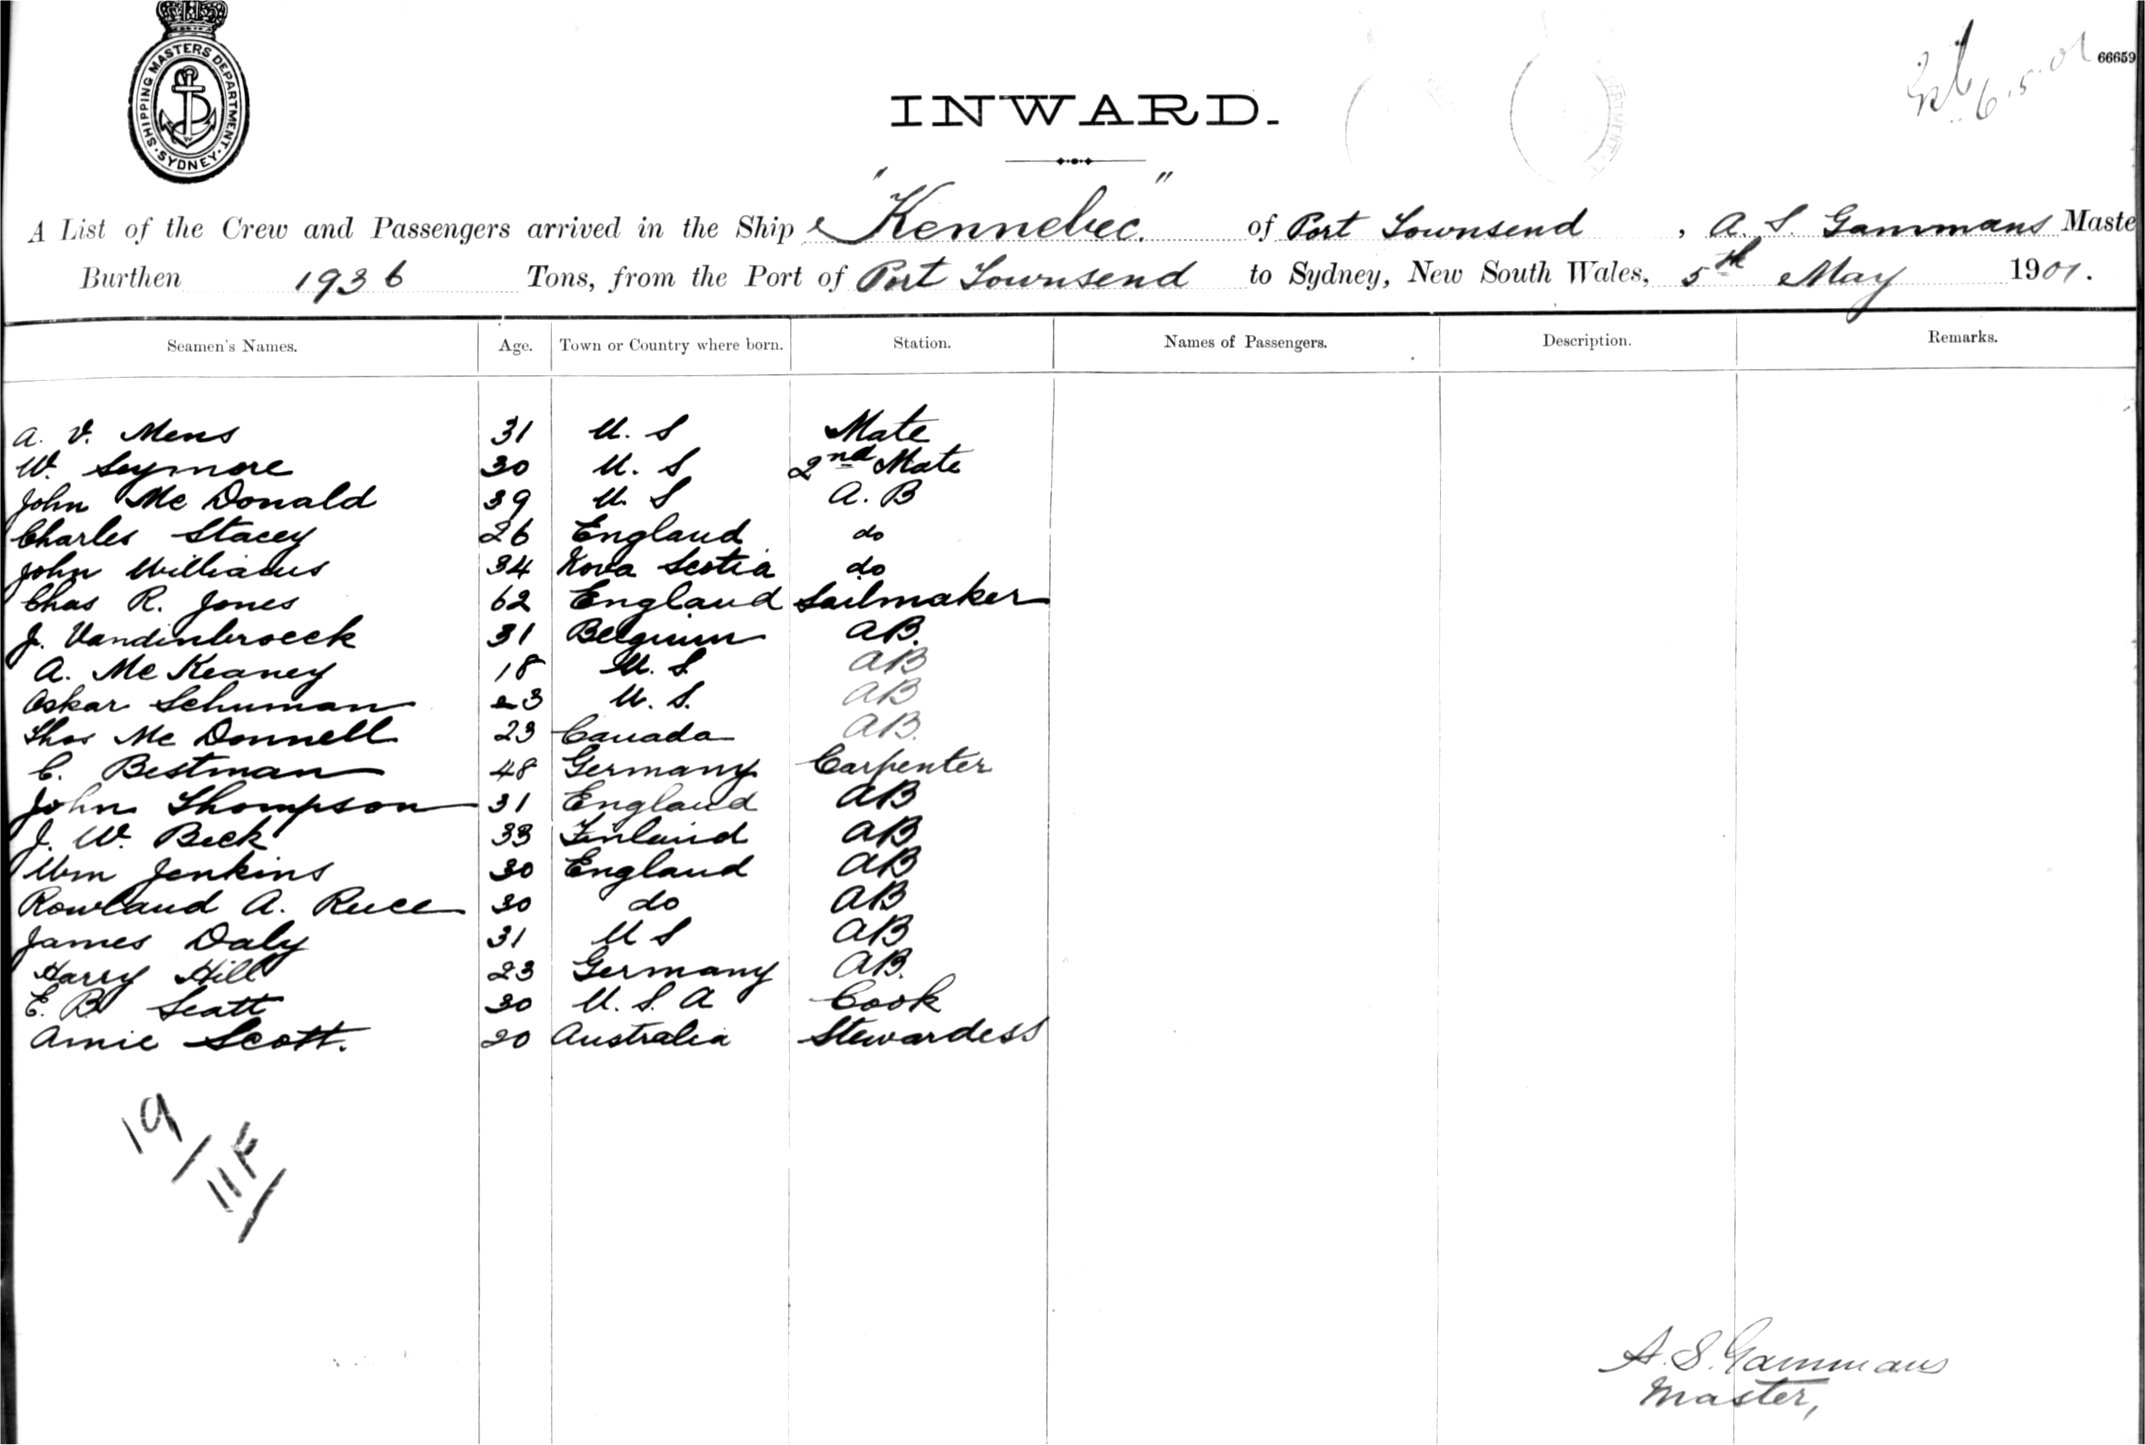 SHIPPING MASTERS DEPARTMENT.
SYDNEY
66659
6.5.01
INWARD.
A List of the Crew and Passengers arrived in the Ship "Kennebec" of Port Townsend, A. S. Gammans Maste
Burthen 1936 Tons, from the Port of Port Townsend to Sydney, New South Wales, 5th May 1901.
Seamen's Names. Age. Town or Country where born. Station. Names of Passengers. Description. Remarks.
A. V. Mens 31 U. S Mate
W. Seymore 30 U. S 2nd Mate
John Mc Donald 39 U. S A. B
Charles Stacey 26 England do
John Williams 34 Nova Scotia do
Chas R. Jones 62 England Sailmaker
J. Vandinbroeck 31 Belgium AB.
A. Mc Keaney 18 U. S. AB
Oskar Schuman 23 U. S. AB
Thos Mc Donnell 23 Canada AB.
C. Bestman 48 Germany Carpenter
John Thompson 31 England AB
J. W. Beck 33 Finland AB
Wm Jenkins 30 England AB
Rowland A. Ruce 30 do AB
James Daly 31 U S AB
Harry Hill 23 Germany AB.
E. B. Scott 30 U. S. A Cook
Annie Scott. 20 Australia Stewardess
19
11F
A. S. Gammans
Master,